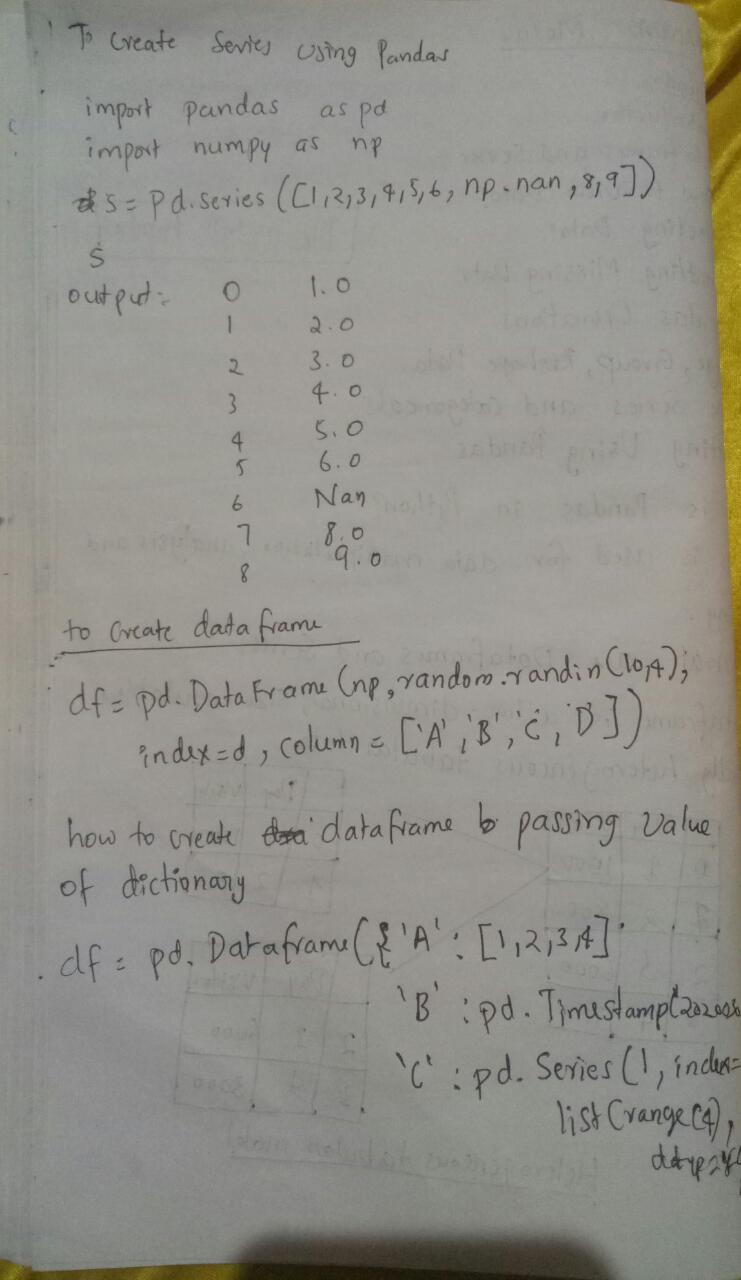 To Create Series Using Pandas
import pandas as pd
import numpy as np
s = Pd.series ([1,2,3,4,5,6, np.nan ,8,9])
s
output:
0 1.0
1 2.0
2 3.0
3 4.0
4 5.0
5 6.0
6 Nan
7 8.0
8 9.0
to Create data frame
df = pd. DataFrame (np,random.randin(10,4);
index=d, column = ['A','B','C,'D])
how to create dataframe b passing value
of dictionary
df = pd. Dataframe({'A': [1,2,3,4]
'B' : pd. Timestamp(
'C' : pd. Series (1, index=
list(range(4),